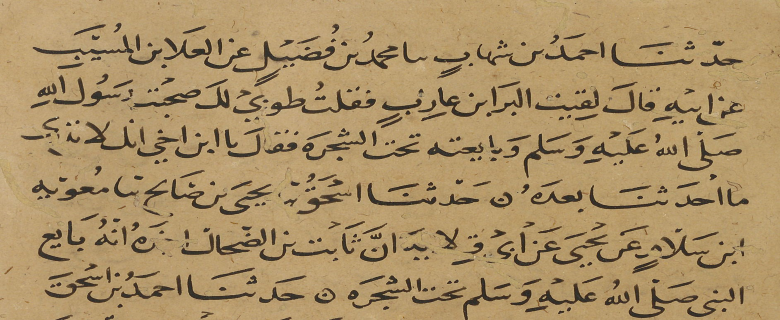 حدثنا احمد بن شهاب سا محمد بن فضيل عن العلا بن المسيب
عن ابيه قال لقيت البرا بن عازب فقلت طوبي لك صحبت رسول الله
صلى الله عليه وسلم وبايعته تحت الشجرة فقال يا ابن اخي انك لا تدري
ما احدثنا بعده ن حدثنا اسحق نا يحيى بن صالح نا معويه
ابن سلام عن يحيى عن ابي قلابه ان ثابت بن الضحاك اخبره انه بايع
النبي صلى الله عليه وسلم تحت الشجره ن حدثنا احمد بن اسحق